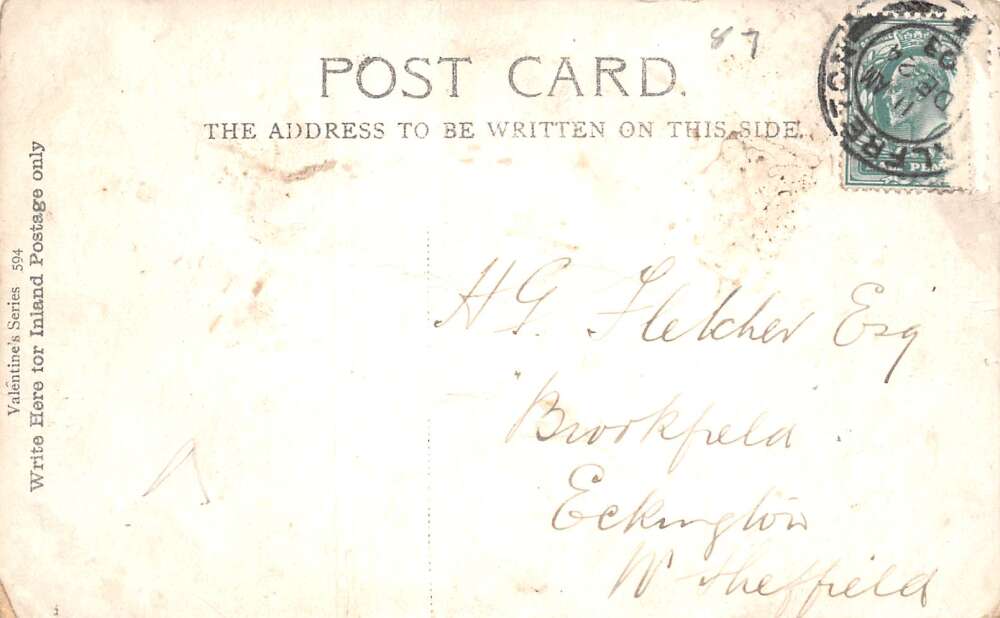 87
POST CARD.
THE ADDRESS TO BE WRITTEN ON THIS SIDE.
Valentine's Series 594
Write Here for Inland Postage only
ALFRETON
11 AM
DE 2
03
H G. Fletcher Esq
Brookfield.
Eckington
Nr Sheffield